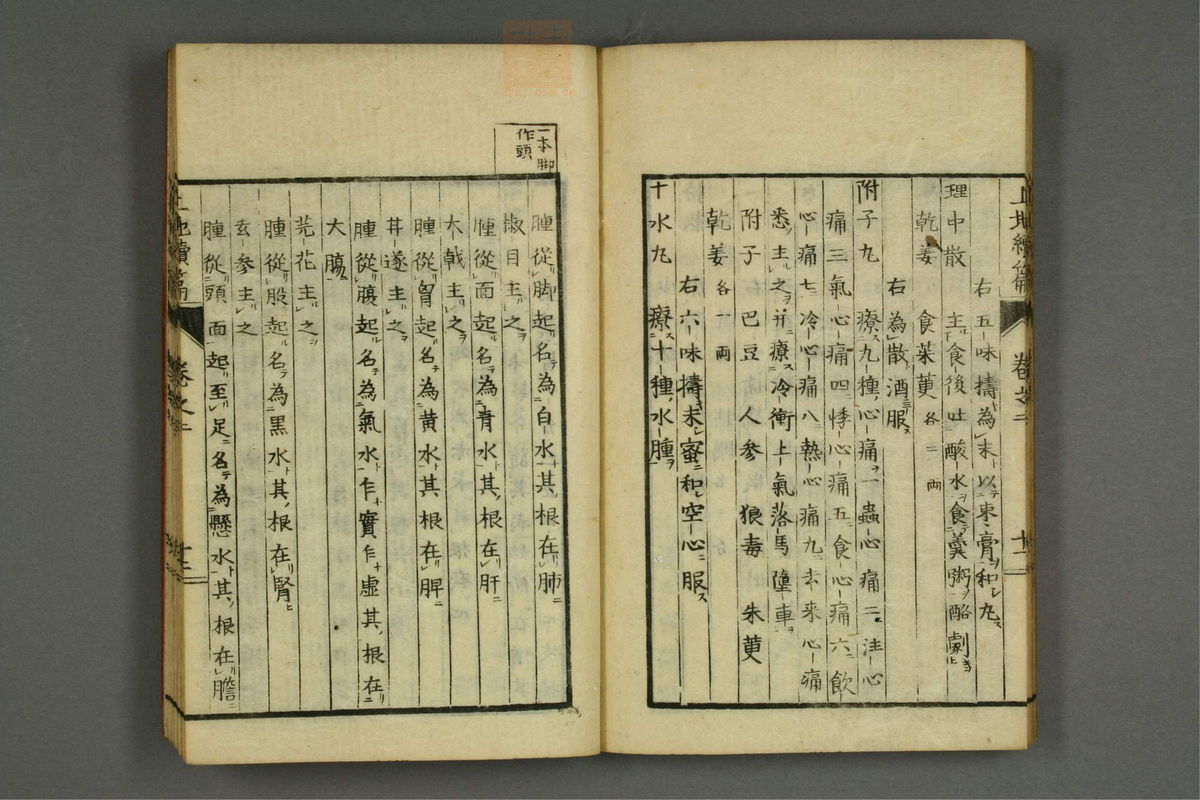 右五味擣為末以棗膏和丸
理中散　主食後吐酸水食羹粥酪劇
乾姜　食茱萸各二両
右為散酒服
附子丸　療九種心痛一蟲心痛二注心
痛三氣心痛四悸心痛五食心痛六飲
心痛七冷心痛八熱心痛九去来心痛
悉主之并療冷衝上氣落馬墮車
附子　巴豆　人参　狼毒　朱萸
乾姜各一両
右六味擣末蜜和空心服
十水丸　療十種水腫
卷之二
十二
一本脚
作頭
腫從脚起名為白水其根在肺
椒目主之
腫從面起名為青水其根在肝
大戟主之
腫從胷起名為黄水其根在脾
甘遂主之
腫從腹起名為氣水乍實乍虛其根在
大腸
芫花主之
腫從股起名為黒水其根在腎
玄参主之
腫從頭面起至足名為懸水其根在膽
卷之二